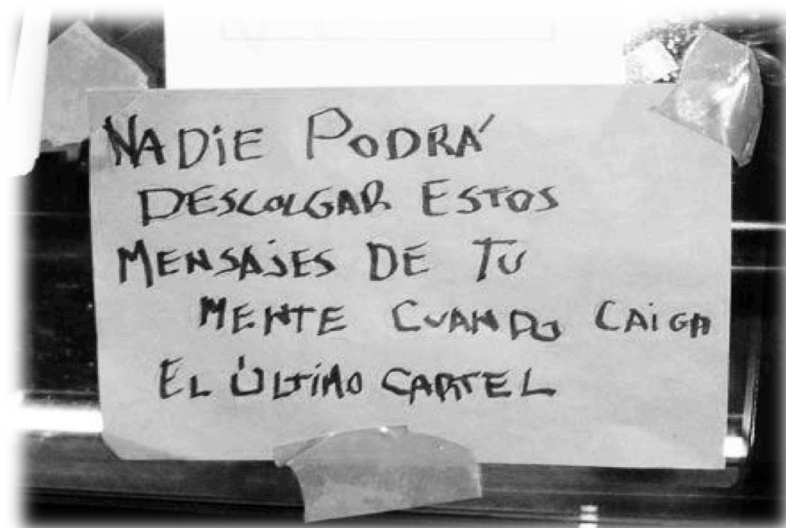 NADiE PODRÁ
DESCOLGAR ESTOS
MENSAJES DE TU
MENTE CUANDO CAIGA
EL ÚLTiMO CARTEL